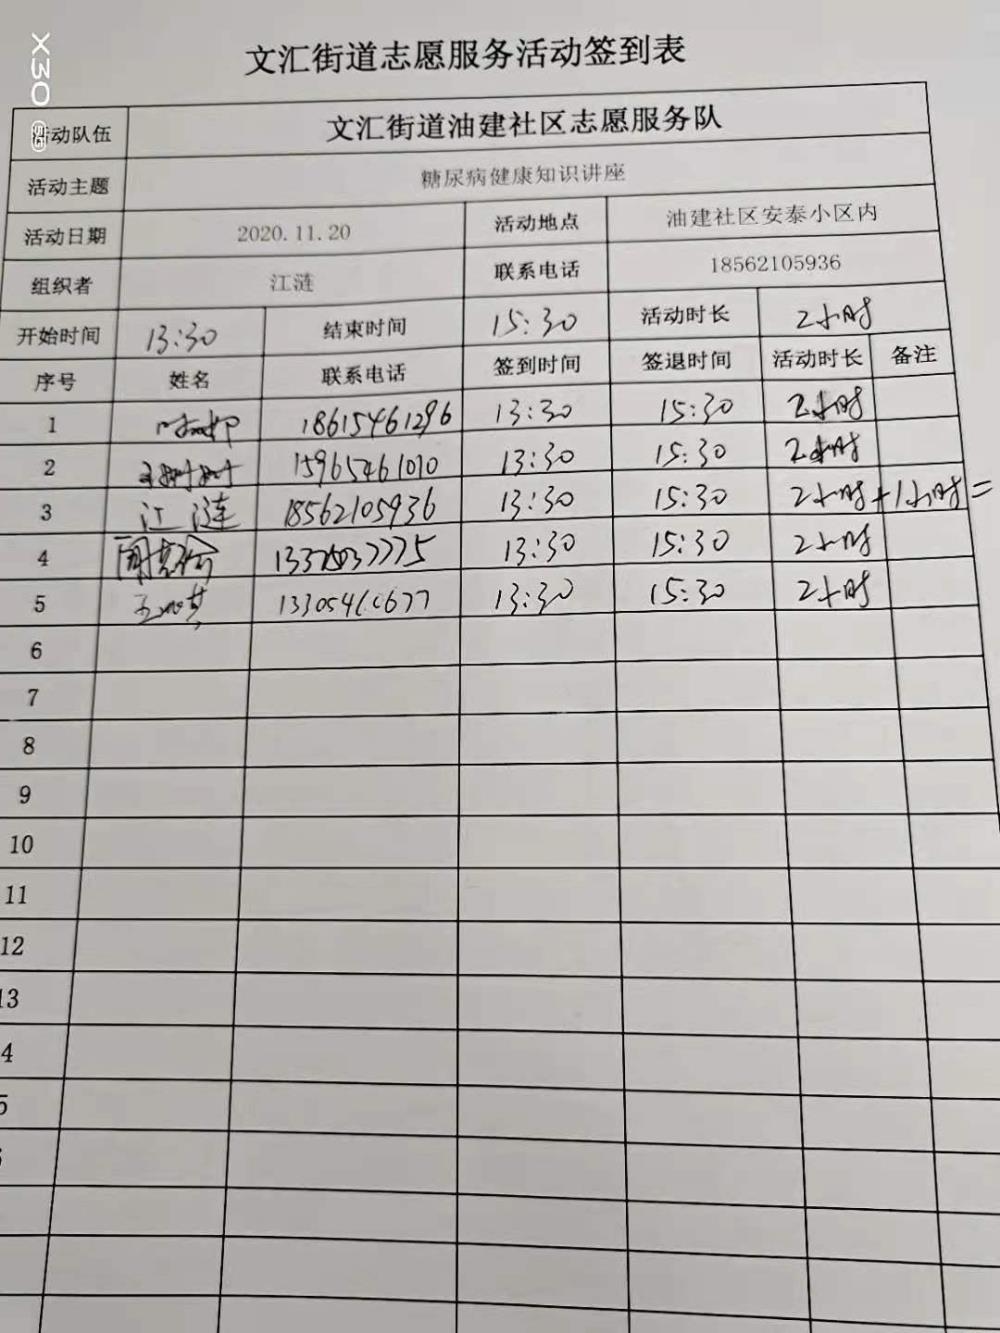 X30
文汇街道志愿服务活动签到表
活动队伍 文汇街道油建社区志愿服务队
活动主题 糖尿病健康知识讲座
活动日期 2020.11.20 活动地点 油建社区安泰小区内
组织者 江涟 联系电话 18562105936
开始时间 13:30 结束时间 15:30 活动时长 2小时
序号 姓名 联系电话 签到时间 签退时间 活动时长 备注
1 18615461296 13:30 15:30 2小时
2 15965461010 13:30 15:30 2小时
3 江涟 18562105936 13:30 15:30 2小时+1小时=
4 13:30 15:30 2小时
5 13:30 15:30 2小时
6
7
8
9
10
11
12
13
4
5